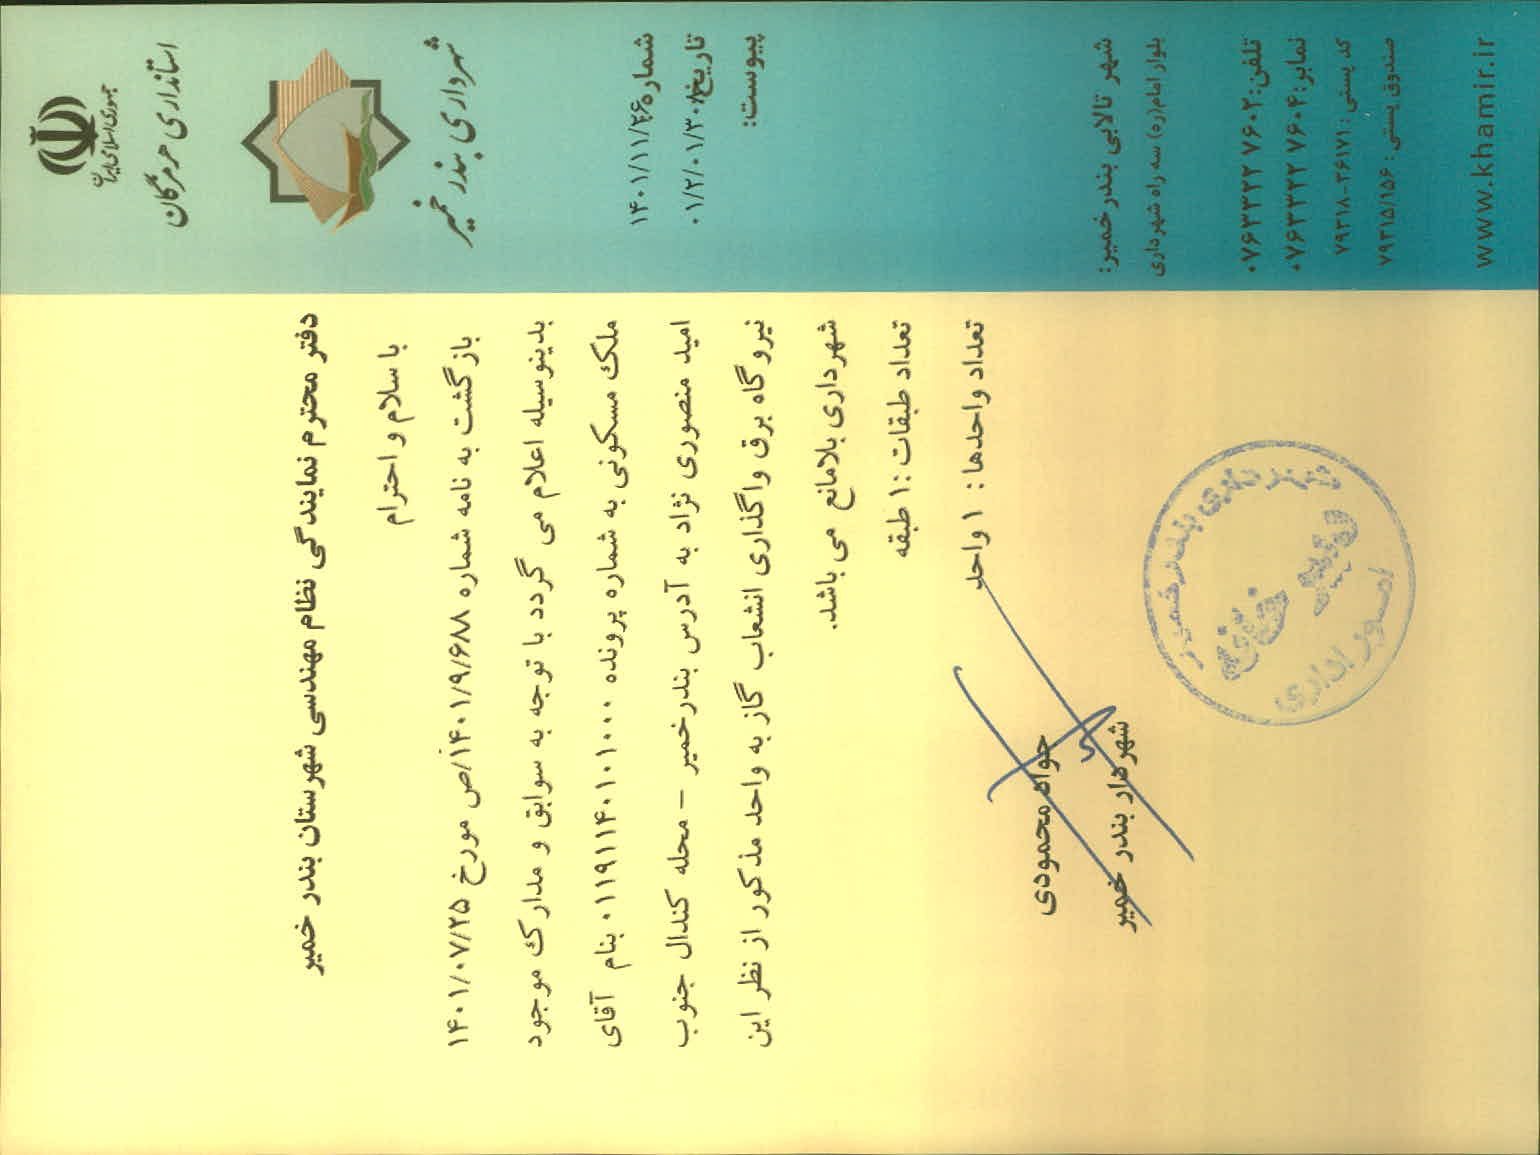 جمهوری اسلامی ایران
استانداری هرمزگان
شهرداری بندر خمیر
شماره: ۱۴۰۱/۱۱/۲۶
تاریخ: ۰۱/۲/۰۱/۳۰۸
پیوست:
شهر تالابی بندر خمیر:
بلوار امام(ره) سه راه شهرداری
تلفن: ۰۷۶۳۳۲۲ ۷۶۰۲
نمابر: ۰۷۶۳۳۲۲ ۷۶۰۴
کد پستی: ۷۹۳۱۸-۳۶۱۷۱
صندوق پستی: ۷۹۳۱۵/۱۵۶
www.khamir.ir
دفتر محترم نمایندگی نظام مهندسی شهرستان بندر خمیر
با سلام و احترام
بازگشت به نامه شماره ۱۴۰۱/۹/۶۸۸/ص مورخ ۱۴۰۱/۰۷/۲۵
بدینوسیله اعلام می گردد با توجه به سوابق و مدارک موجود
ملک مسکونی به شماره پرونده ۰۱۱۹۱۱۴۰۱۰۱۰۰۰ بنام آقای
امید منصوری نژاد به آدرس بندرخمیر – محله کندال جنوب
نیروگاه برق واگذاری انشعاب گاز به واحد مذکور از نظر این
شهرداری بلامانع می باشد.
تعداد طبقات :۱ طبقه
تعداد واحدها : ۱ واحد
جواد محمودی
شهردار بندر خمیر
شهرداری بندر خمیر
دبیر خانه
امور اداری